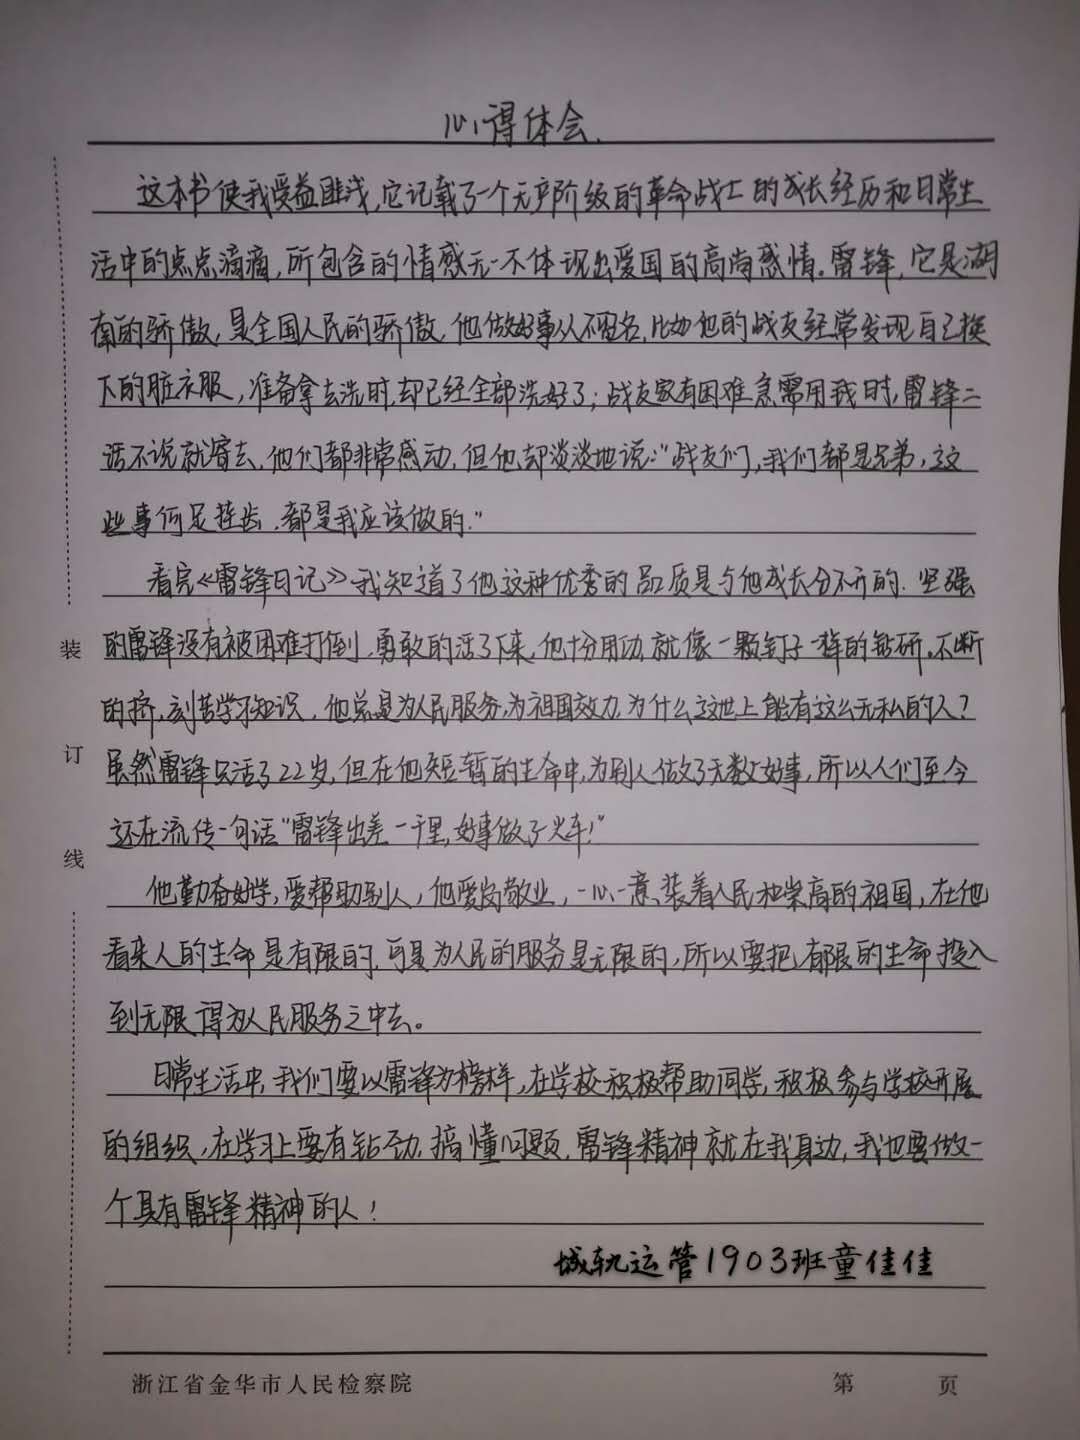 心得体会.
这本书使我受益匪浅,它记载了一个无产阶级的革命战士的成长经历和日常生
活中的点点滴滴,所包含的情感无一不体现出爱国的高尚感情。雷锋,它是湖
南的骄傲,是全国人民的骄傲,他做好事从不留名,比如他的战友经常发现自己换
下的脏衣服,准备拿去洗时,却已经全部洗好了;战友家有困难急需用钱时,雷锋二
话不说就寄去,他们都非常感动,但他却淡淡地说:“战友们,我们都是兄弟,这
些事何足挂齿,都是我应该做的.”
看完《雷锋日记》我知道了他这种优秀的品质是与他成长分不开的.坚强
的雷锋没有被困难打倒,勇敢的活了下来,他十分用功,就像一颗钉子一样的钻研。不断
的挤,刻苦学习知识,他总是为人民服务,为祖国效力,为什么这世上能有这么无私的人?
虽然雷锋只活了22岁,但在他短暂的生命中,为别人做了无数好事,所以人们至今
还在流传一句话“雷锋出差一千里,好事做了火车!”
他勤奋好学,爱帮助别人,他爱岗敬业,一心一意,装着人民和崇高的祖国,在他
看来人的生命是有限的,可是为人民的服务是无限的,所以要把有限的生命投入
到无限得为人民服务之中去。
日常生活中,我们要以雷锋为榜样,在学校积极帮助同学,积极参与学校开展
的组织,在学习上要有钻劲,搞懂问题,雷锋精神就在我身边,我也要做一
个具有雷锋精神的人!
城轨运管1903班童佳佳
装
订
线
浙江省金华市人民检察院 第 页